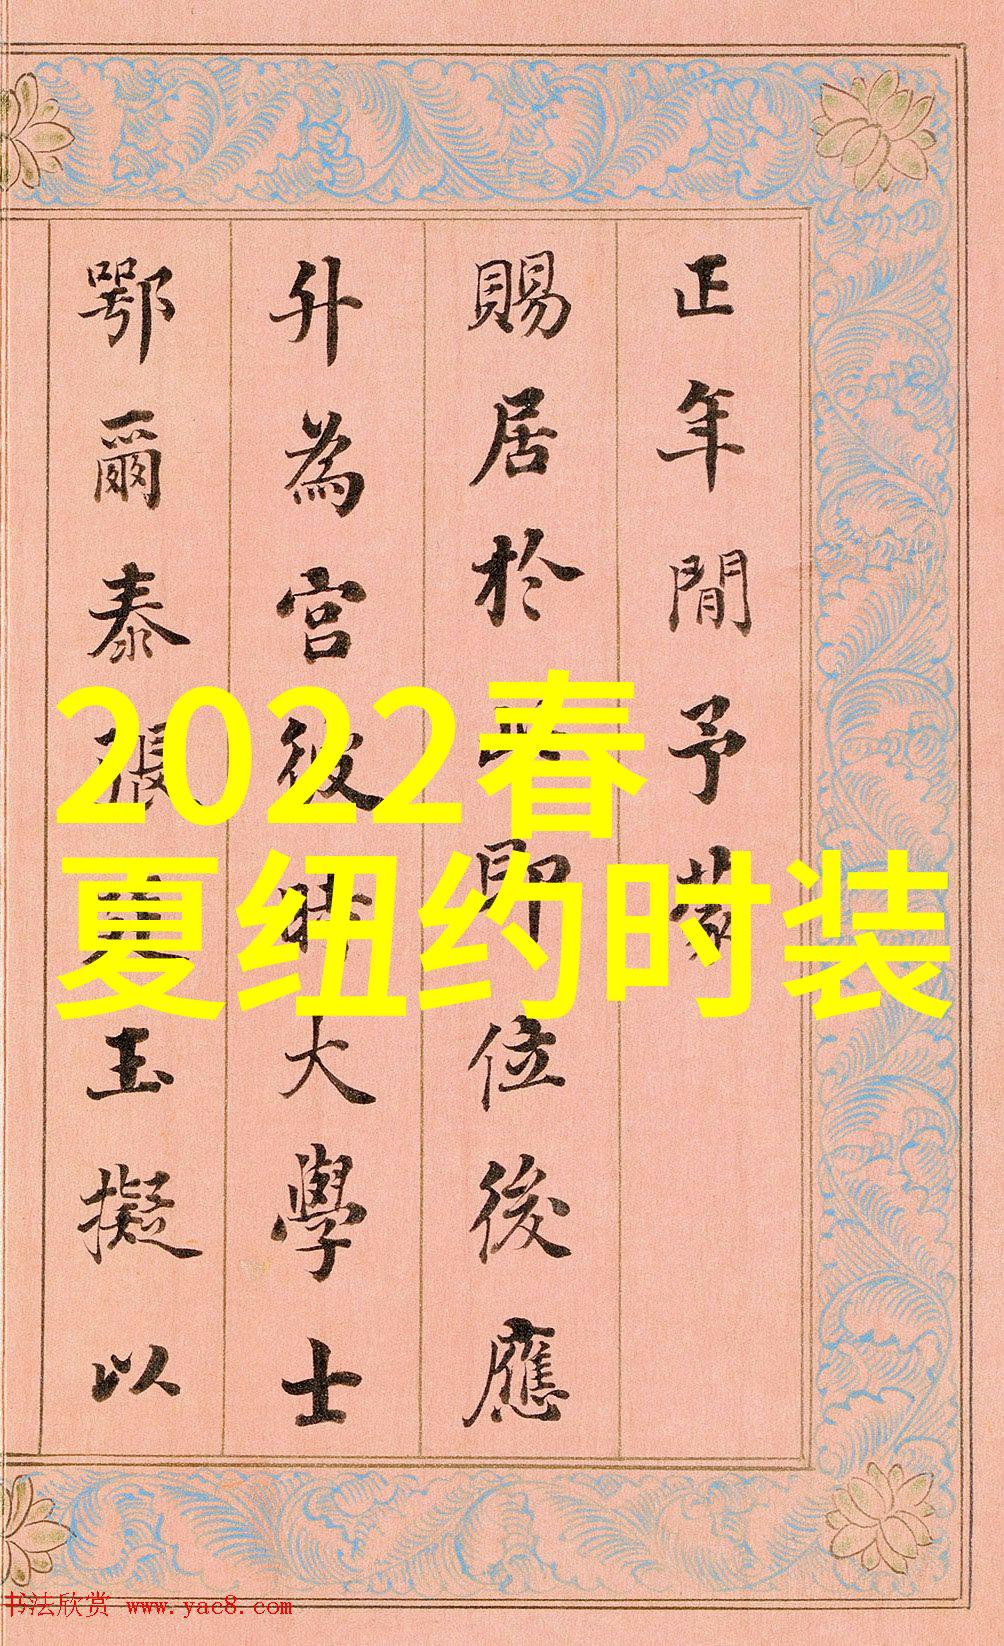 正年間予蒙
賜居於此即位後應
升為宮彼時大學士
鄂爾泰張廷玉擬以
2022春
夏纽约时装
书法欣赏 www.yac8.com